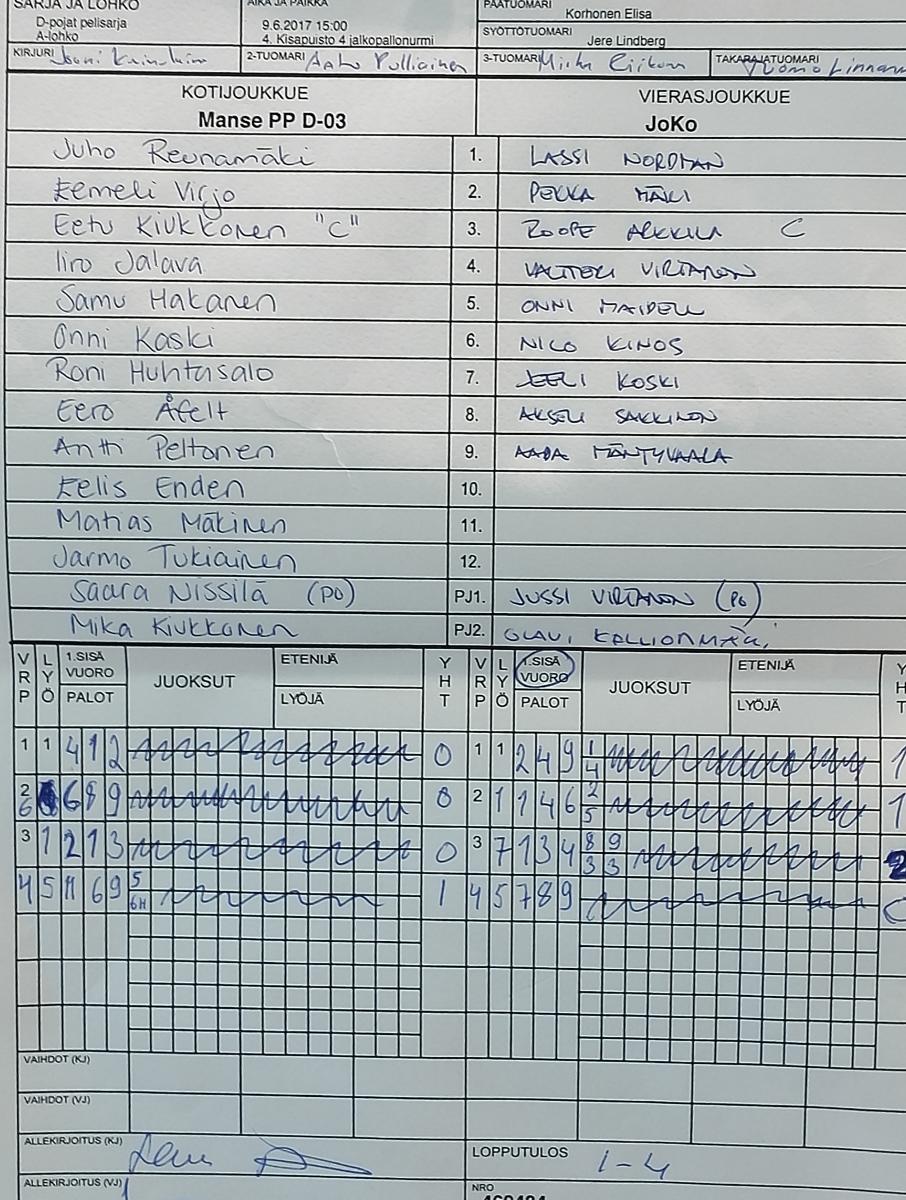 SARJA JA LOHKO
D-pojat pelisarja
A-lohko
AIKA JA PAIKKA
9.6.2017 15:00
4. Kisapuisto 4 jalkopallonurmi
PÄÄTUOMARI
Korhonen Elisa
SYÖTTÖTUOMARI
Jere Lindberg
KIRJURI
2-TUOMARI
3-TUOMARI
TAKARAJATUOMARI
KOTIJOUKKUE
Manse PP D-03
VIERASJOUKKUE
JoKo
Juho Reunamäki 1. LASSI NORDMAN
Eemeli Virjo 2. PEKKA MÄKI
Eetu Kiukkonen "C" 3. ROOPE ARKKILA C
Iiro Jalava 4. VALTTERI VIRTANEN
Samu Hakanen 5. ONNI MAIDELL
Onni Kaski 6. NICO KINOS
Roni Huhtasalo 7. EELI KOSKI
Eero Åfelt 8. AKSELI SAKKINEN
Antti Peltonen 9. AADA MÄNTYVAARA
Eelis Enden 10.
Matias Mäkinen 11.
Jarmo Tukiainen 12.
Saara Nissilä (PO) PJ1. JUSSI VIRTANEN (PO)
Mika Kiukkonen PJ2. OLAVI KALLIONMÄKI
VRP LYÖ 1.SISÄ VUORO PALOT JUOKSUT ETENIJÄ LYÖJÄ YHT VRP LYÖ 1.SISÄ VUORO PALOT JUOKSUT ETENIJÄ LYÖJÄ YHT
1 1 4 1 2 0 1 1 2 4 9 1/4 1
2 6 6 8 9 0 2 1 1 4 6 2/5 1
3 1 2 1 3 0 3 7 1 3 4 8/3 9/3 2
4 5 11 6 9 5/6H 1 4 5 7 8 9
VAIHDOT (KJ)
VAIHDOT (VJ)
ALLEKIRJOITUS (KJ)
LOPPUTULOS 1-4
ALLEKIRJOITUS (VJ)
NRO